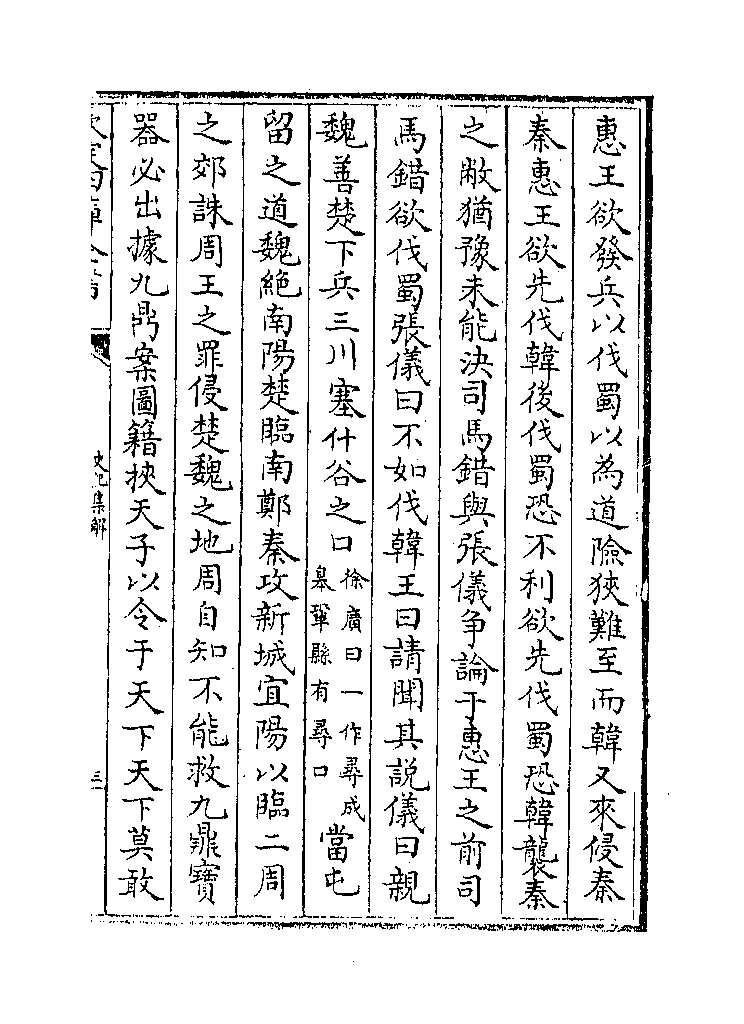 惠王欲發兵以伐蜀以為道險狹難至而韓又來侵秦
秦惠王欲先伐韓後伐蜀恐不利欲先伐蜀恐韓襲秦
之敝猶豫未能決司馬錯與張儀争論于惠王之前司
馬錯欲伐蜀張儀曰不如伐韓王曰請聞其説儀曰親
魏善楚下兵三川塞什谷之口徐廣曰一作尋成臯鞏縣有尋口當屯
留之道魏絶南陽楚臨南鄭秦攻新城宜陽以臨二周
之郊誅周王之罪侵楚魏之地周自知不能救九鼎寶
器必出據九鼎案圖籍挾天子以令于天下天下莫敢
欽定四庫全書
史記集解
三